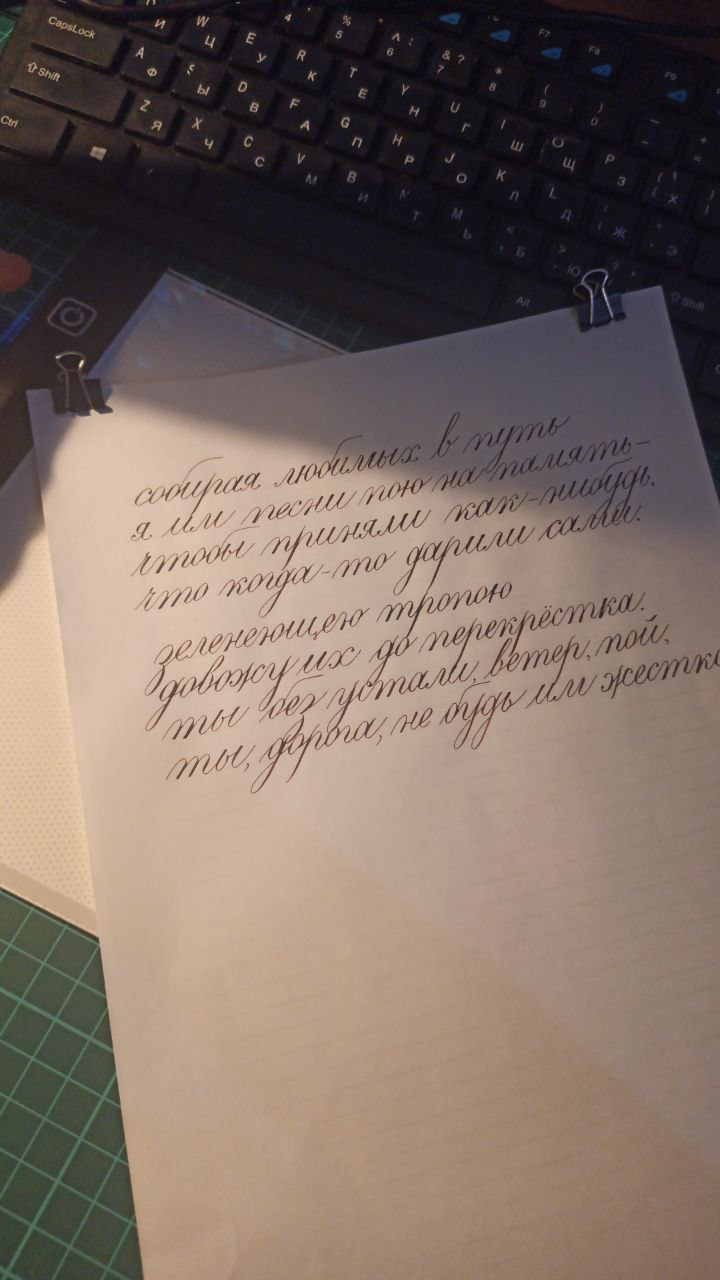 CapsLock
Shift
Ctrl
Alt
Shift
F7
F8
F9
собирая любимых в путь
я им песни пою на память–
чтобы приняли как-нибудь,
что когда-то дарили сами.
зеленеющею тропою
довожу их до перекрёстка.
ты без устали, ветер, пой,
ты, дорога, не будь им